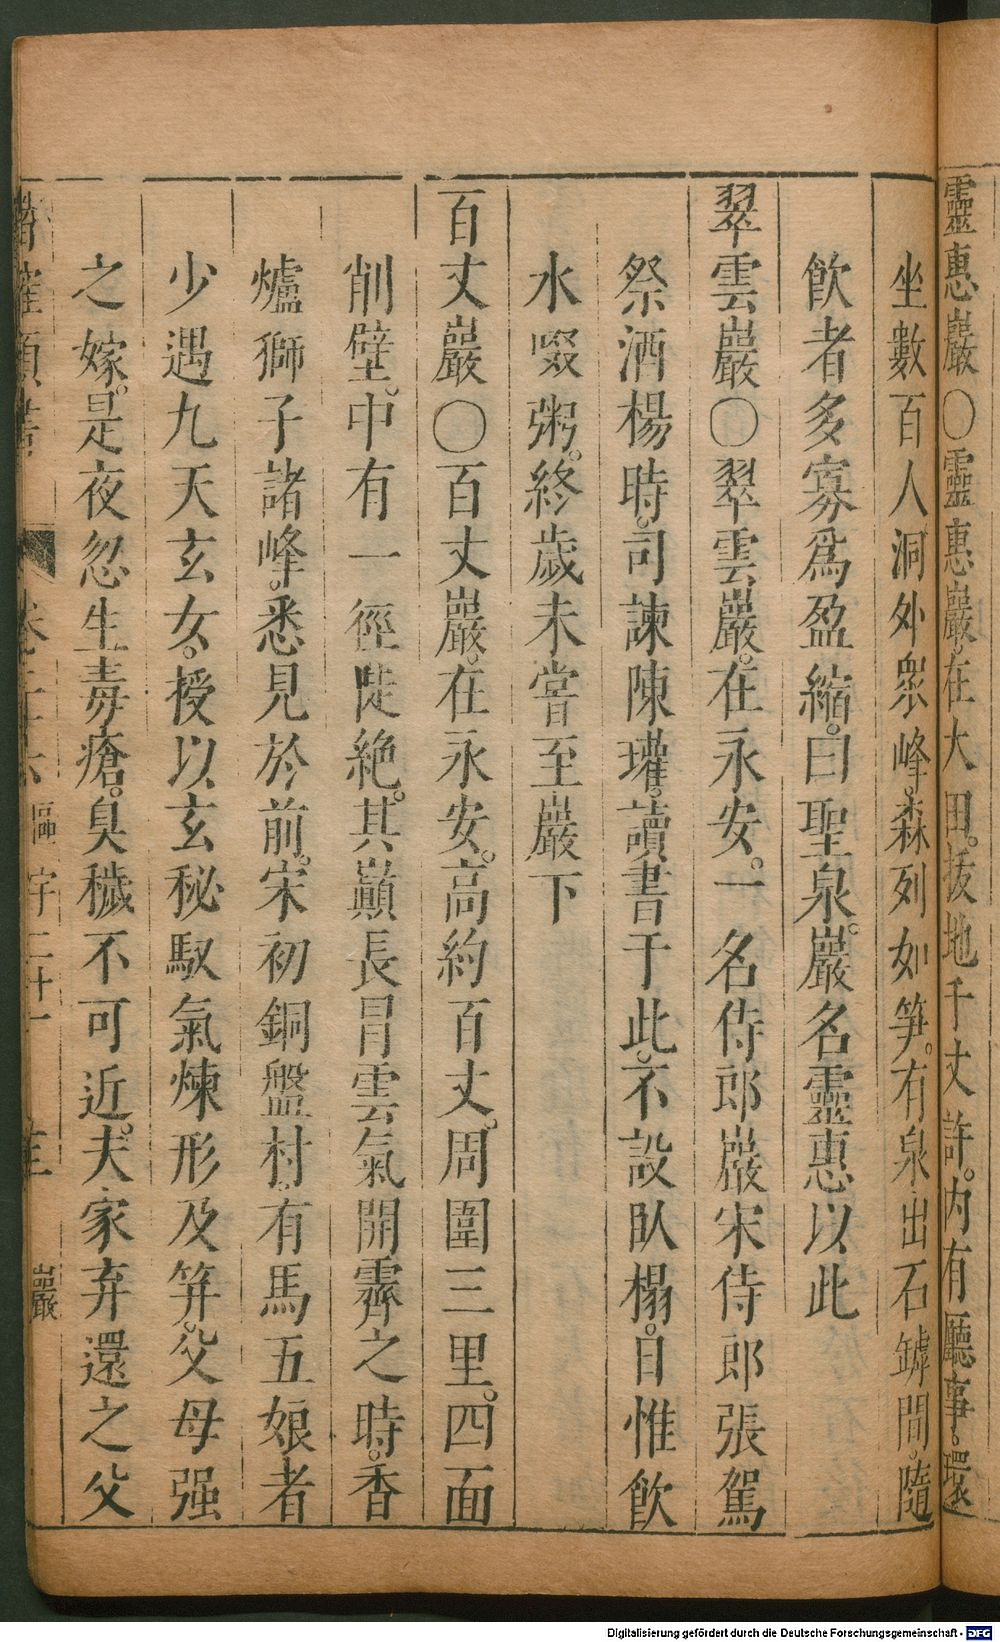 靈惠巖〇靈惠巖。在大田。拔地千丈許。内有廳事。環
坐數百人洞外衆峰。森列如笋。有泉出石罅間。隨
飲者多寡爲盈縮。曰聖泉。巖名靈惠以此
翠雲巖〇翠雲巖。在永安。一名侍郎巖宋侍郎張駕
祭酒楊時。司諫陳瓘。讀書于此。不設臥榻。日惟飲
水啜粥。終歲未嘗至巖下
百丈巖〇百丈巖。在永安。高約百丈。周圍三里。四面
削壁。中有一徑陡絶。其巔長冒雲氣開霽之時。香
爐獅子諸峰。悉見於前。宋初銅盤村。有馬五娘者
少遇九天玄女。授以玄秘馭氣煉形及笄。父母强
之嫁。是夜忽生毒瘡。臭穢不可近。夫家弃還之父
卷 字 巖
Digitalisierung gefördert durch die Deutsche Forschungsgemeinschaft - DFG